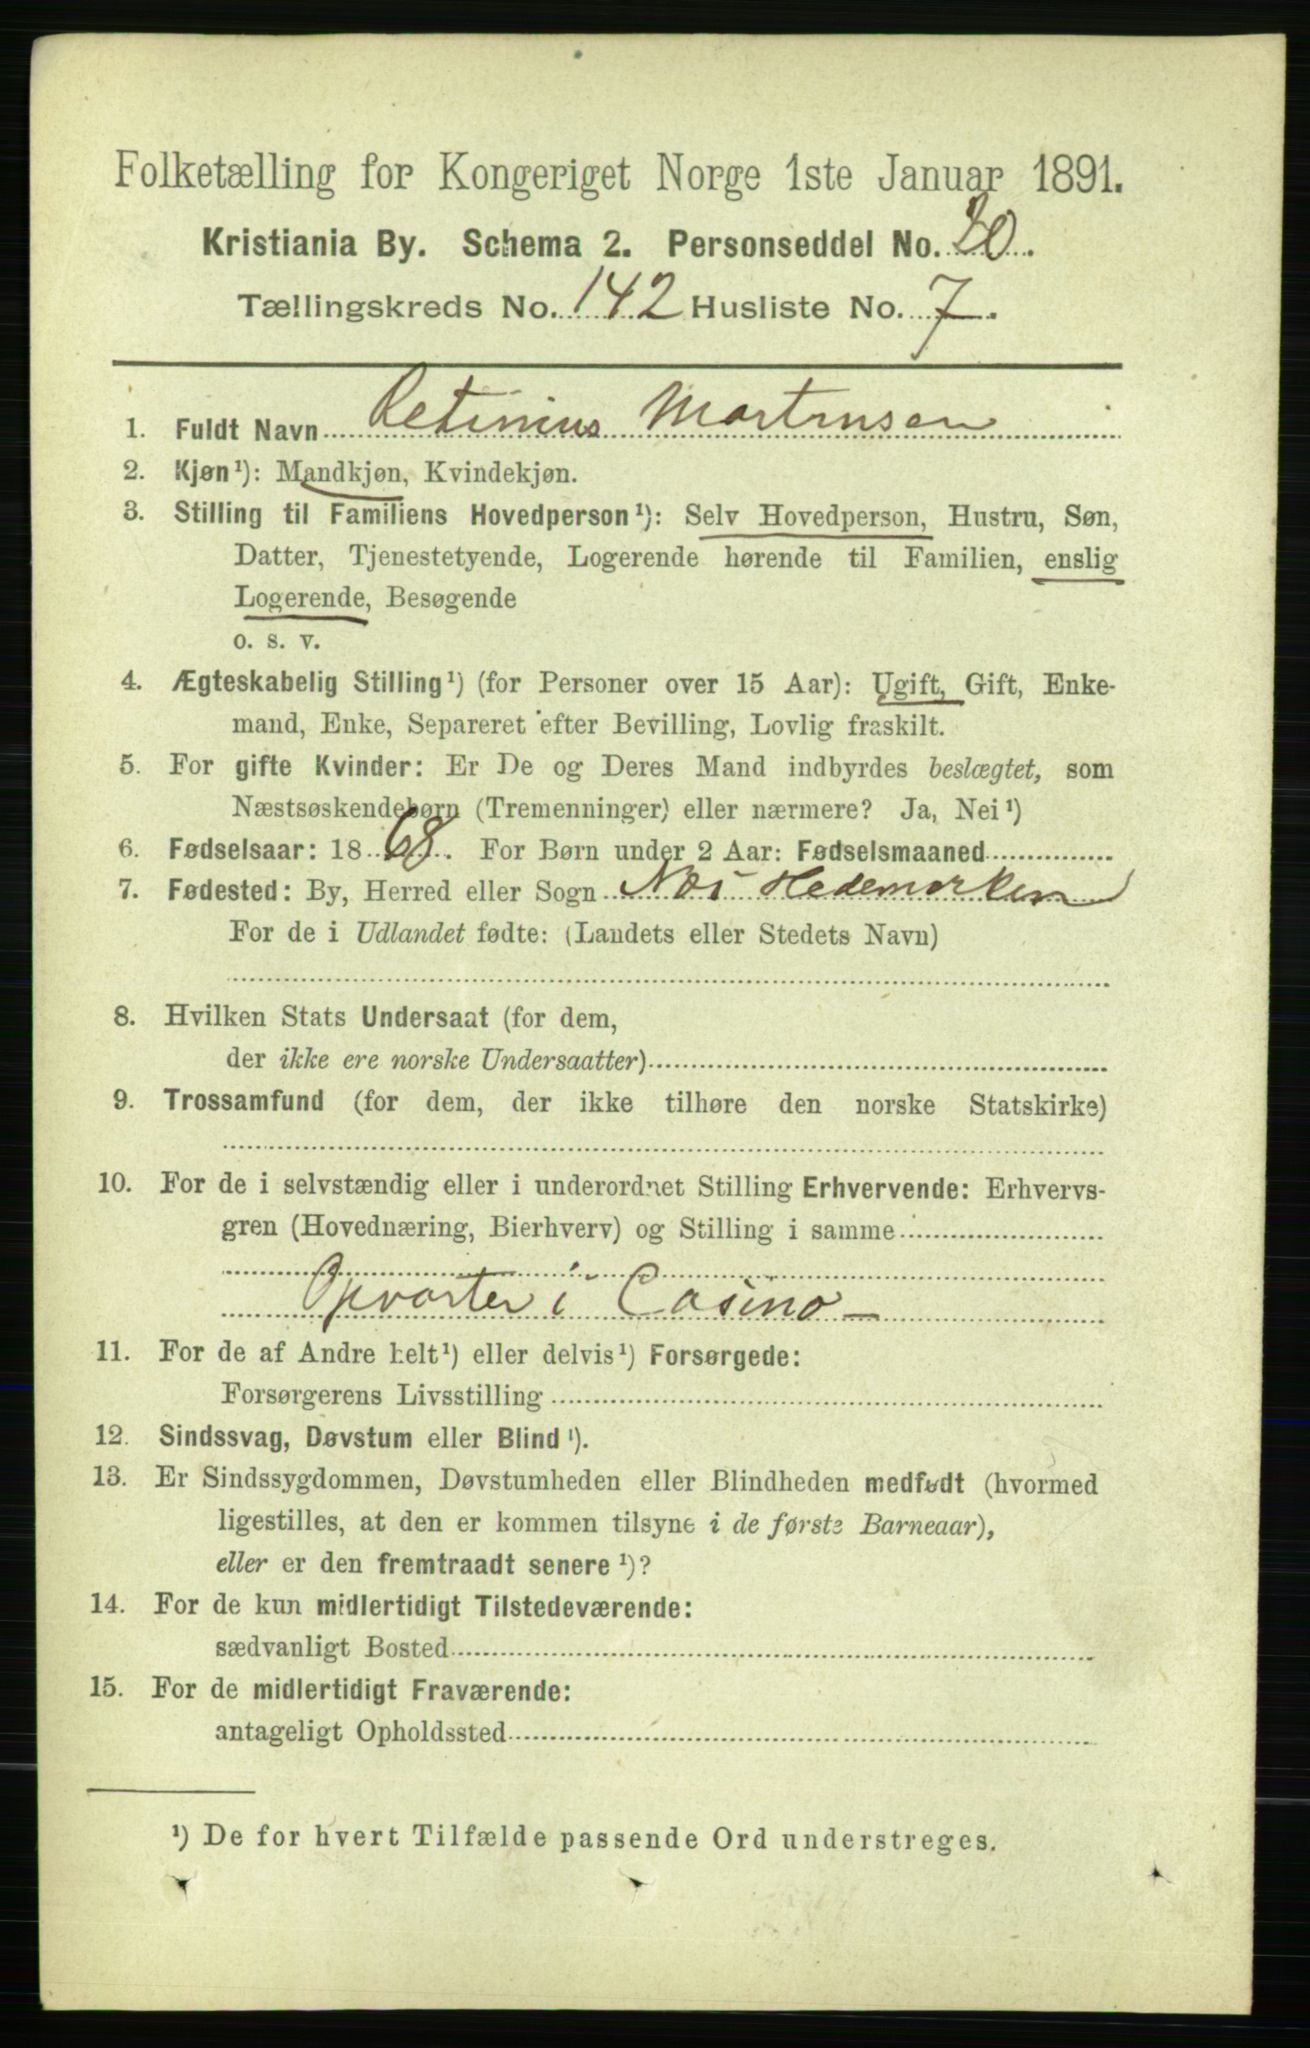 Folketælling for Kongeriget Norge 1ste Januar 1891.
Kristiania By. Schema 2. Personseddel No. 20.
Tællingskreds No. 142 Husliste No. 7.
1. Fuldt Navn Martinsen
2. Kjøn¹): Mandkjøn, Kvindekjøn.
3. Stilling til Familiens Hovedperson¹): Selv Hovedperson, Hustru, Søn,
Datter, Tjenestetyende, Logerende hørende til Familien, enslig
Logerende, Besøgende
o. s. v.
4. Ægteskabelig Stilling¹) (for Personer over 15 Aar): Ugift, Gift, Enke-
mand, Enke, Separeret efter Bevilling, Lovlig fraskilt.
5. For gifte Kvinder: Er De og Deres Mand indbyrdes beslægtet, som
Næstsøskendebørn (Tremenninger) eller nærmere? Ja, Nei¹)
6. Fødselsaar: 1868. For Børn under 2 Aar: Fødselsmaaned
7. Fødested: By, Herred eller Sogn Næs Hedemarken
For de i Udlandet fødte: (Landets eller Stedets Navn)
8. Hvilken Stats Undersaat (for dem,
der ikke ere norske Undersaatter)
9. Trossamfund (for dem, der ikke tilhøre den norske Statskirke)
10. For de i selvstændig eller i underordnet Stilling Erhvervende: Erhvervs-
gren (Hovednæring, Bierhverv) og Stilling i samme
Opvarter i Casino
11. For de af Andre helt¹) eller delvis¹) Forsørgede:
Forsørgerens Livsstilling
12. Sindssvag, Døvstum eller Blind¹).
13. Er Sindssygdommen, Døvstumheden eller Blindheden medfødt (hvormed
ligestilles, at den er kommen tilsyne i de første Barneaar),
eller er den fremtraadt senere¹)?
14. For de kun midlertidigt Tilstedeværende:
sædvanligt Bosted
15. For de midlertidigt Fraværende:
antageligt Opholdssted
¹) De for hvert Tilfælde passende Ord understreges.